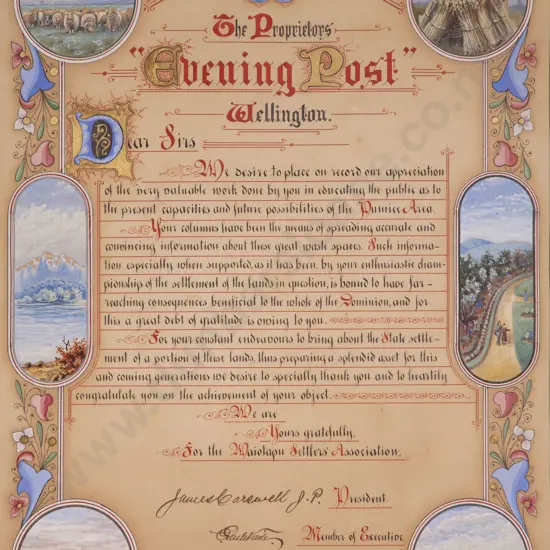 The Proprietors
"Evening Post"
Wellington.
Dear Sirs
We desire to place on record our appreciation
of the very valuable work done by you in educating the public as to
the present capacities and future possibilities of the Pumice Area.
Your columns have been the means of spreading accurate and
convincing information about these great waste spaces. Such informa-
tion especially when supported, as it has been, by your enthusiastic cham-
pionship of the settlement of the lands in question, is bound to have far-
reaching consequences beneficial to the whole of the Dominion, and for
this a great debt of gratitude is owing to you.
For your constant endeavours to bring about the State settle-
ment of a portion of these lands, thus preparing a splendid asset for this
and coming generations we desire to specially thank you and to heartily
congratulate you on the achievement of your object.
We are
Yours gratefully,
For the Waiotapu Settlers' Association.
James Carswell J.P. President.
Member of Executive.